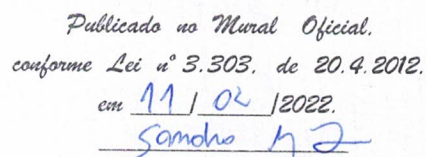 Publicado no Mural Oficial.
conforme Lei nº 3.303. de 20.4.2012.
em 11 / 02 /2022.